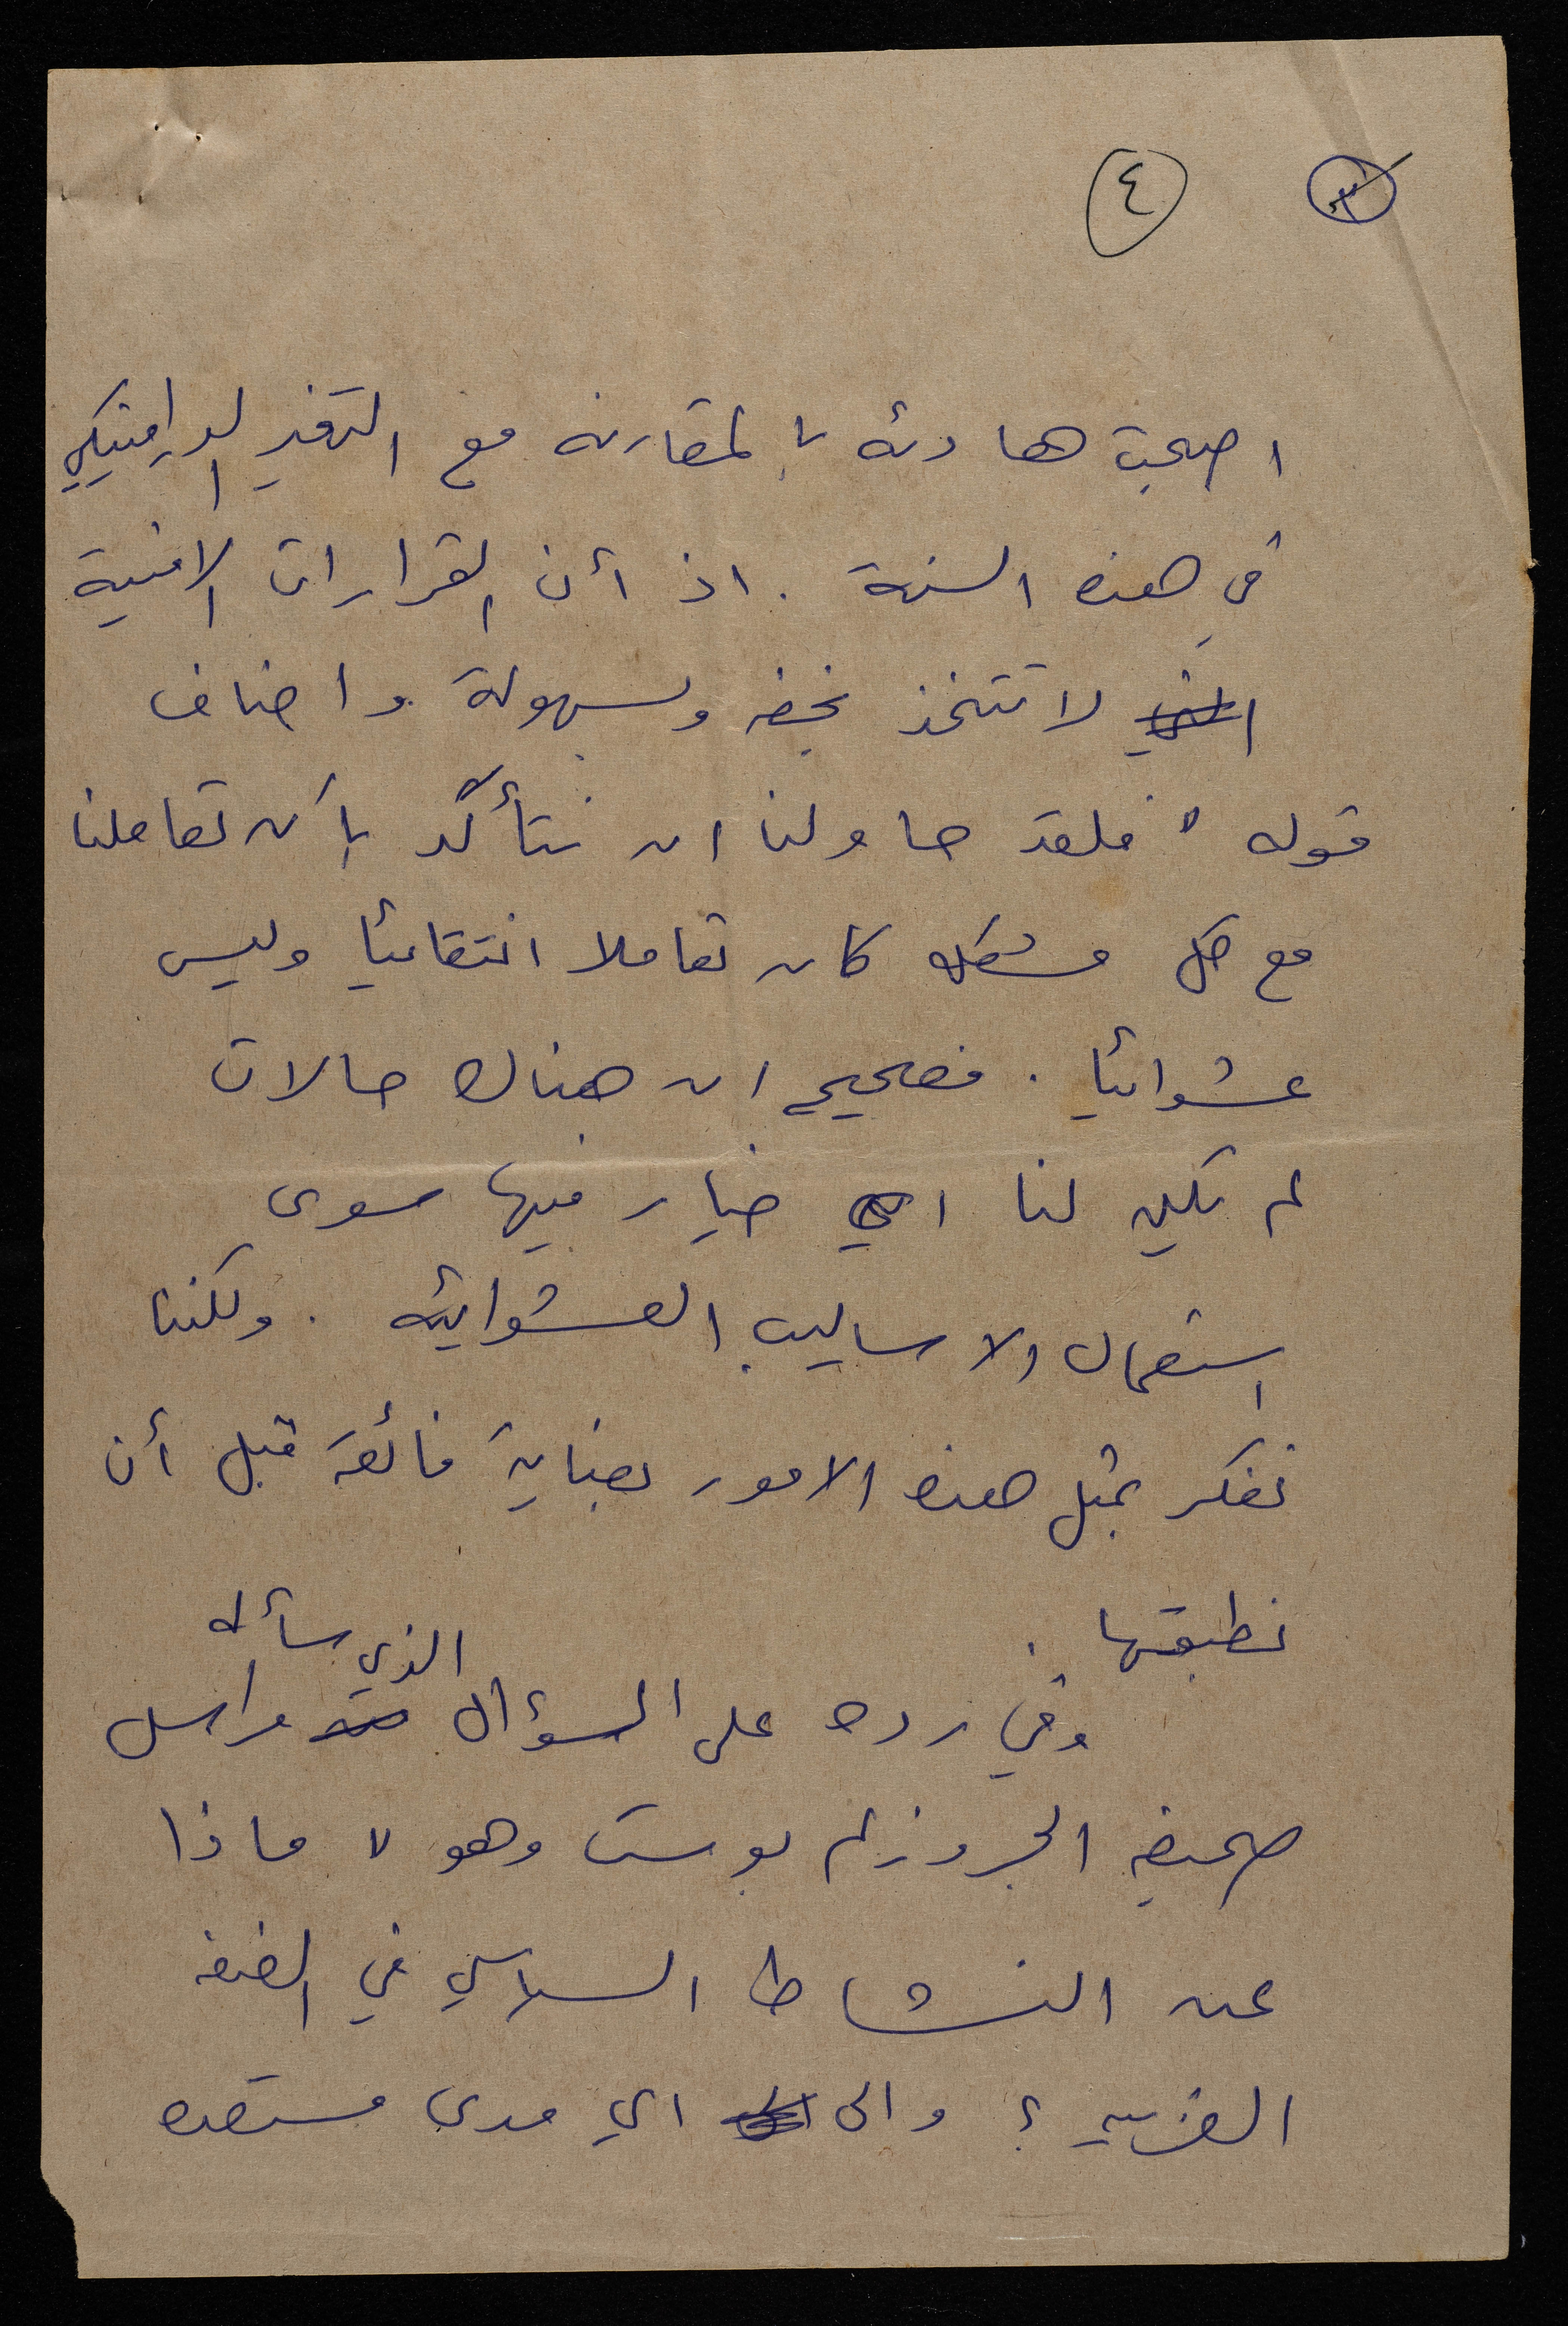 ٣ ٤
اصبحت هادئه بالمقارنه مع التغير الدرامتيكي
في هذه السنة . اذ أن القرارات الامنية
لا تتخذ بخفه وسهولة واضاف
قوله " فلقد حاولنا ان نتأكد بأن تعاملنا
مع كل مشكله كان تعاملا انتقائيا وليس
عشوائيا . فصحيح ان هناك حالات
لم تكن لنا اي خيار فيها سوى
استعمال الاساليب العشوائيه . ولكننا
نفكر بمثل هذه الامور بعناية فائقة قبل أن
نطبقها .
وفي رده على السؤال الذي سأله مراسل
صحيفه الجروزلم بوست وهو " ماذا
عن النشاط السياسي في الضفه
الغربيه ؟ والى اي مدى مستعده